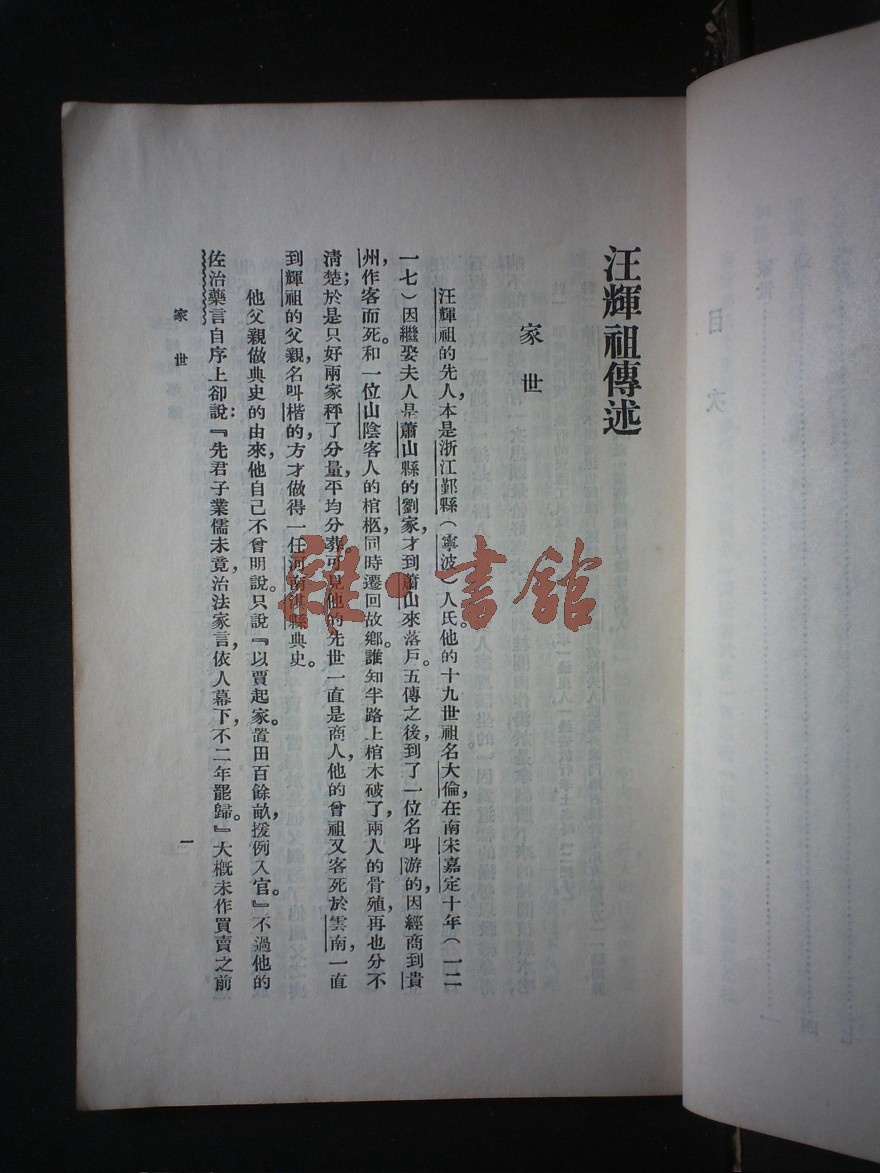 汪輝祖傳述
家世
汪輝祖的先人，本是浙江鄞縣（寧波）人氏他的十九世祖名大倫，在南宋嘉定十年（一二
一七）因繼娶夫人是蕭山縣的劉家，才到蕭山來落戶。五傳之後，到了一位名叫游的，因經商到貴
州，作客而死。和一位山陰客人的棺柩，同時遷回故鄉。誰知半路上棺木破了，兩人的骨殖，再也分不
清楚；於是只好兩家秤了分量，平均分葬。可見他的先世一直是商人，他的曾祖又客死於雲南，一直
到輝祖的父親，名叫楷的，方才做得一任河南淇縣典史。
他父親做典史的由來，他自己不曾明說。只說『以賈起家。置田百餘畝，援例入官。』不過他的
佐治藥言自序上卻說：『先君子業儒未竟，治法家言，依人幕下，不二年罷歸。』大概未作買賣之前
家世
一
雜·書館
目次
家世
四